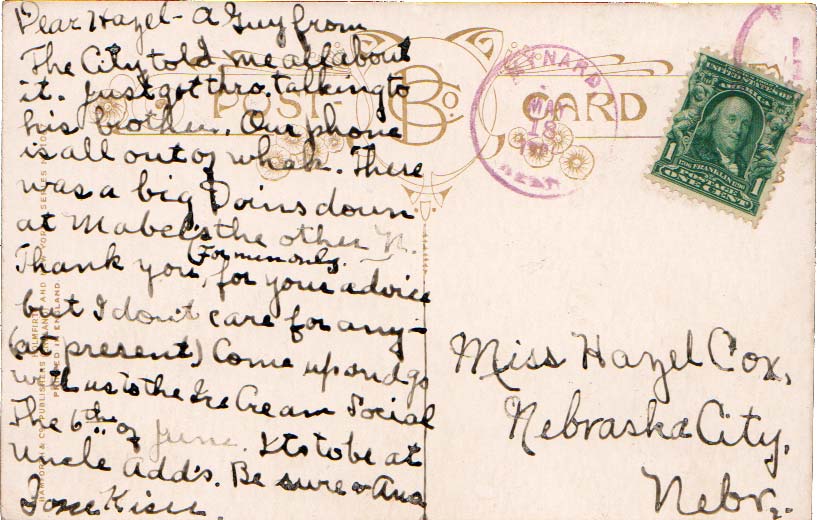 Dear Hazel - A Guy from
The City told me all about
it. Just got thro. talking to
his brother. Our phone
is all out of whak. There
was a big Doins down
at Mabel's the other N.
(For men only.
Thank you, for your advice
but I don't care for any -
(at present) Come up and go
with us to the Ice Cream Social
The 6th of June. Its to be at
Uncle Add's. Be sure &
POST CARD
B Co.
MAY
18
UNITED STATES OF
AMERICA
1 FRANKLIN 1
POSTAGE
ONE CENT
Miss Hazel Cox,
Nebraska City,
Nebr.
PRINTED IN ENGLAND